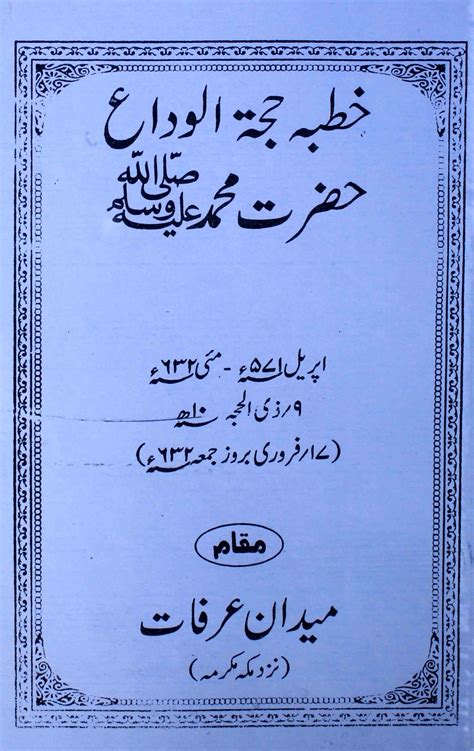 خطبہ حجۃ الوداع
حضرت محمد صلی اللہ علیہ وسلم
اپریل ۵۷۱ء - مئی ۶۳۲ء
۹/ ذی الحجہ ۱۰ھ
(۱۷/ فروری بروز جمعہ ۶۳۲ء)
مقام
میدان عرفات
(نزد مکہ مکرمہ)